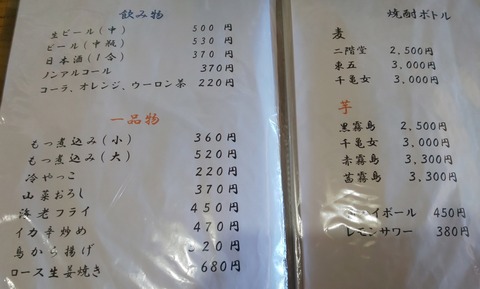 飲み物
生ビール(中) 500円
ビール(中瓶) 530円
日本酒(1合) 370円
ノンアルコール 370円
コーラ、オレンジ、ウーロン茶 220円
一品物
もつ煮込み(小) 360円
もつ煮込み(大) 520円
冷やっこ 220円
山菜おろし 370円
海老フライ 450円
イカ辛炒め 470円
鳥から揚げ 20円
ロース生姜焼き 680円
焼酎ボトル
麦
二階堂 2,500円
東五 3,000円
千亀女 3,000円
芋
黒霧島 2,500円
千亀女 3,000円
赤霧島 3,300円
茜霧島 3,300円
イボール 450円
レモンサワー 380円